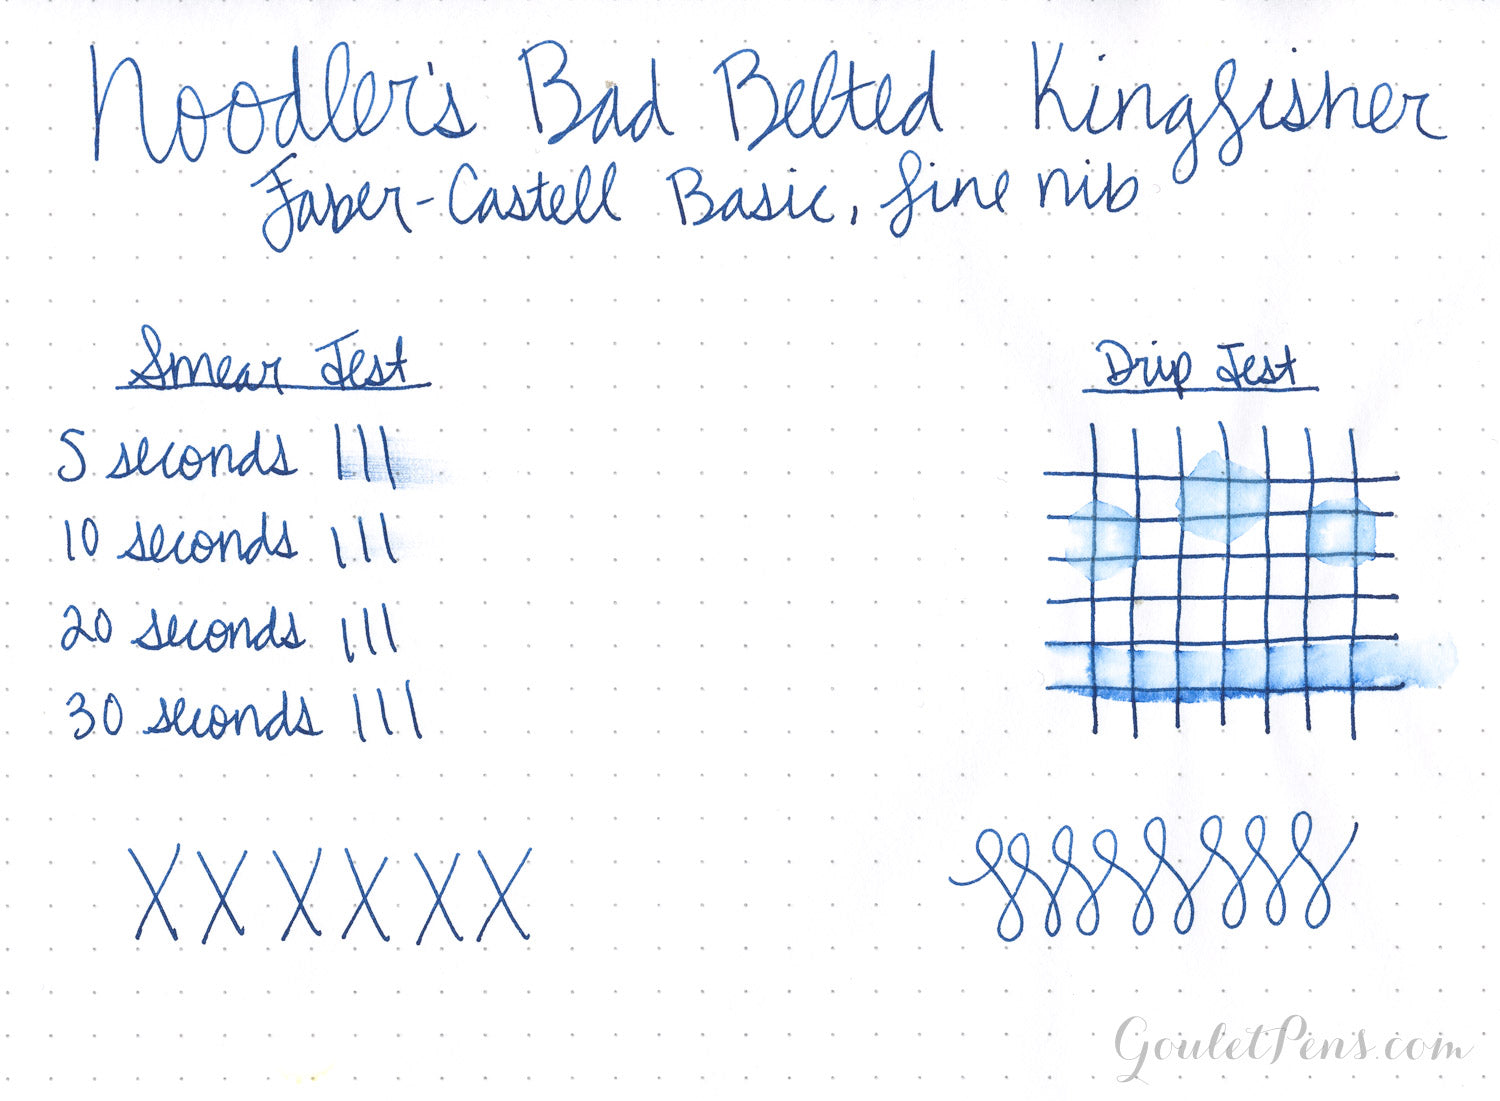 Noodler's Bad Belted Kingfisher
Faber-Castell Basic, fine nib
Smear Test
5 seconds
10 seconds
20 seconds
30 seconds
Drip Test
X X X X X X
GouletPens.com